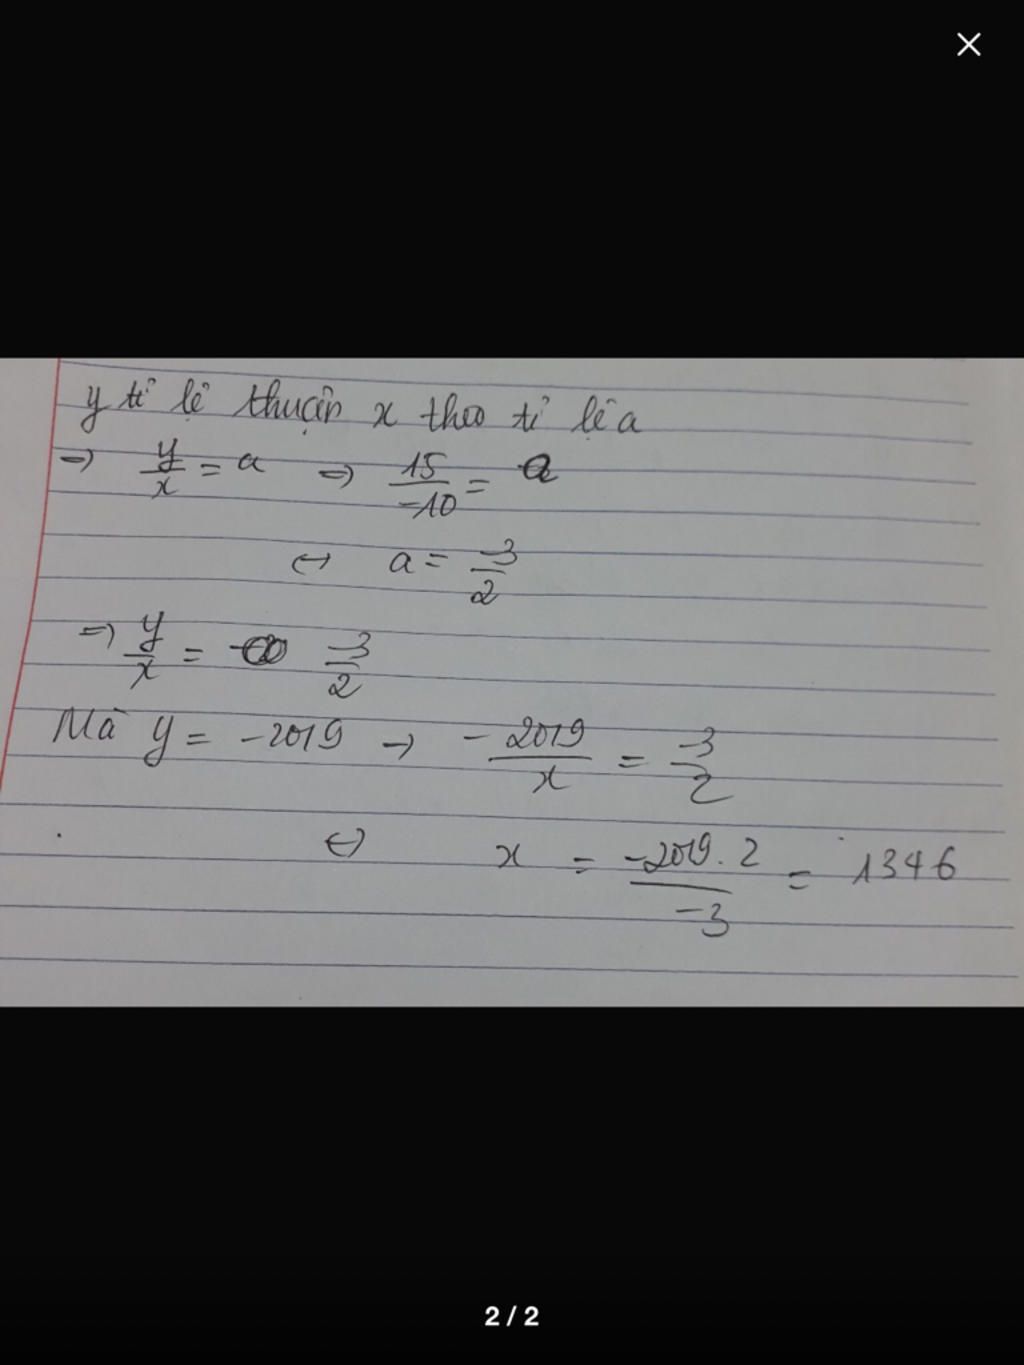 y tỉ lệ thuận x theo tỉ lệ a
=> y/x = a => 15/-10 = a
<-> a = -3/2
=> y/x = -3/2
Mà y = -2019 -> -2019/x = -3/2
<=> x = -2019.2/-3 = 1346
2 / 2